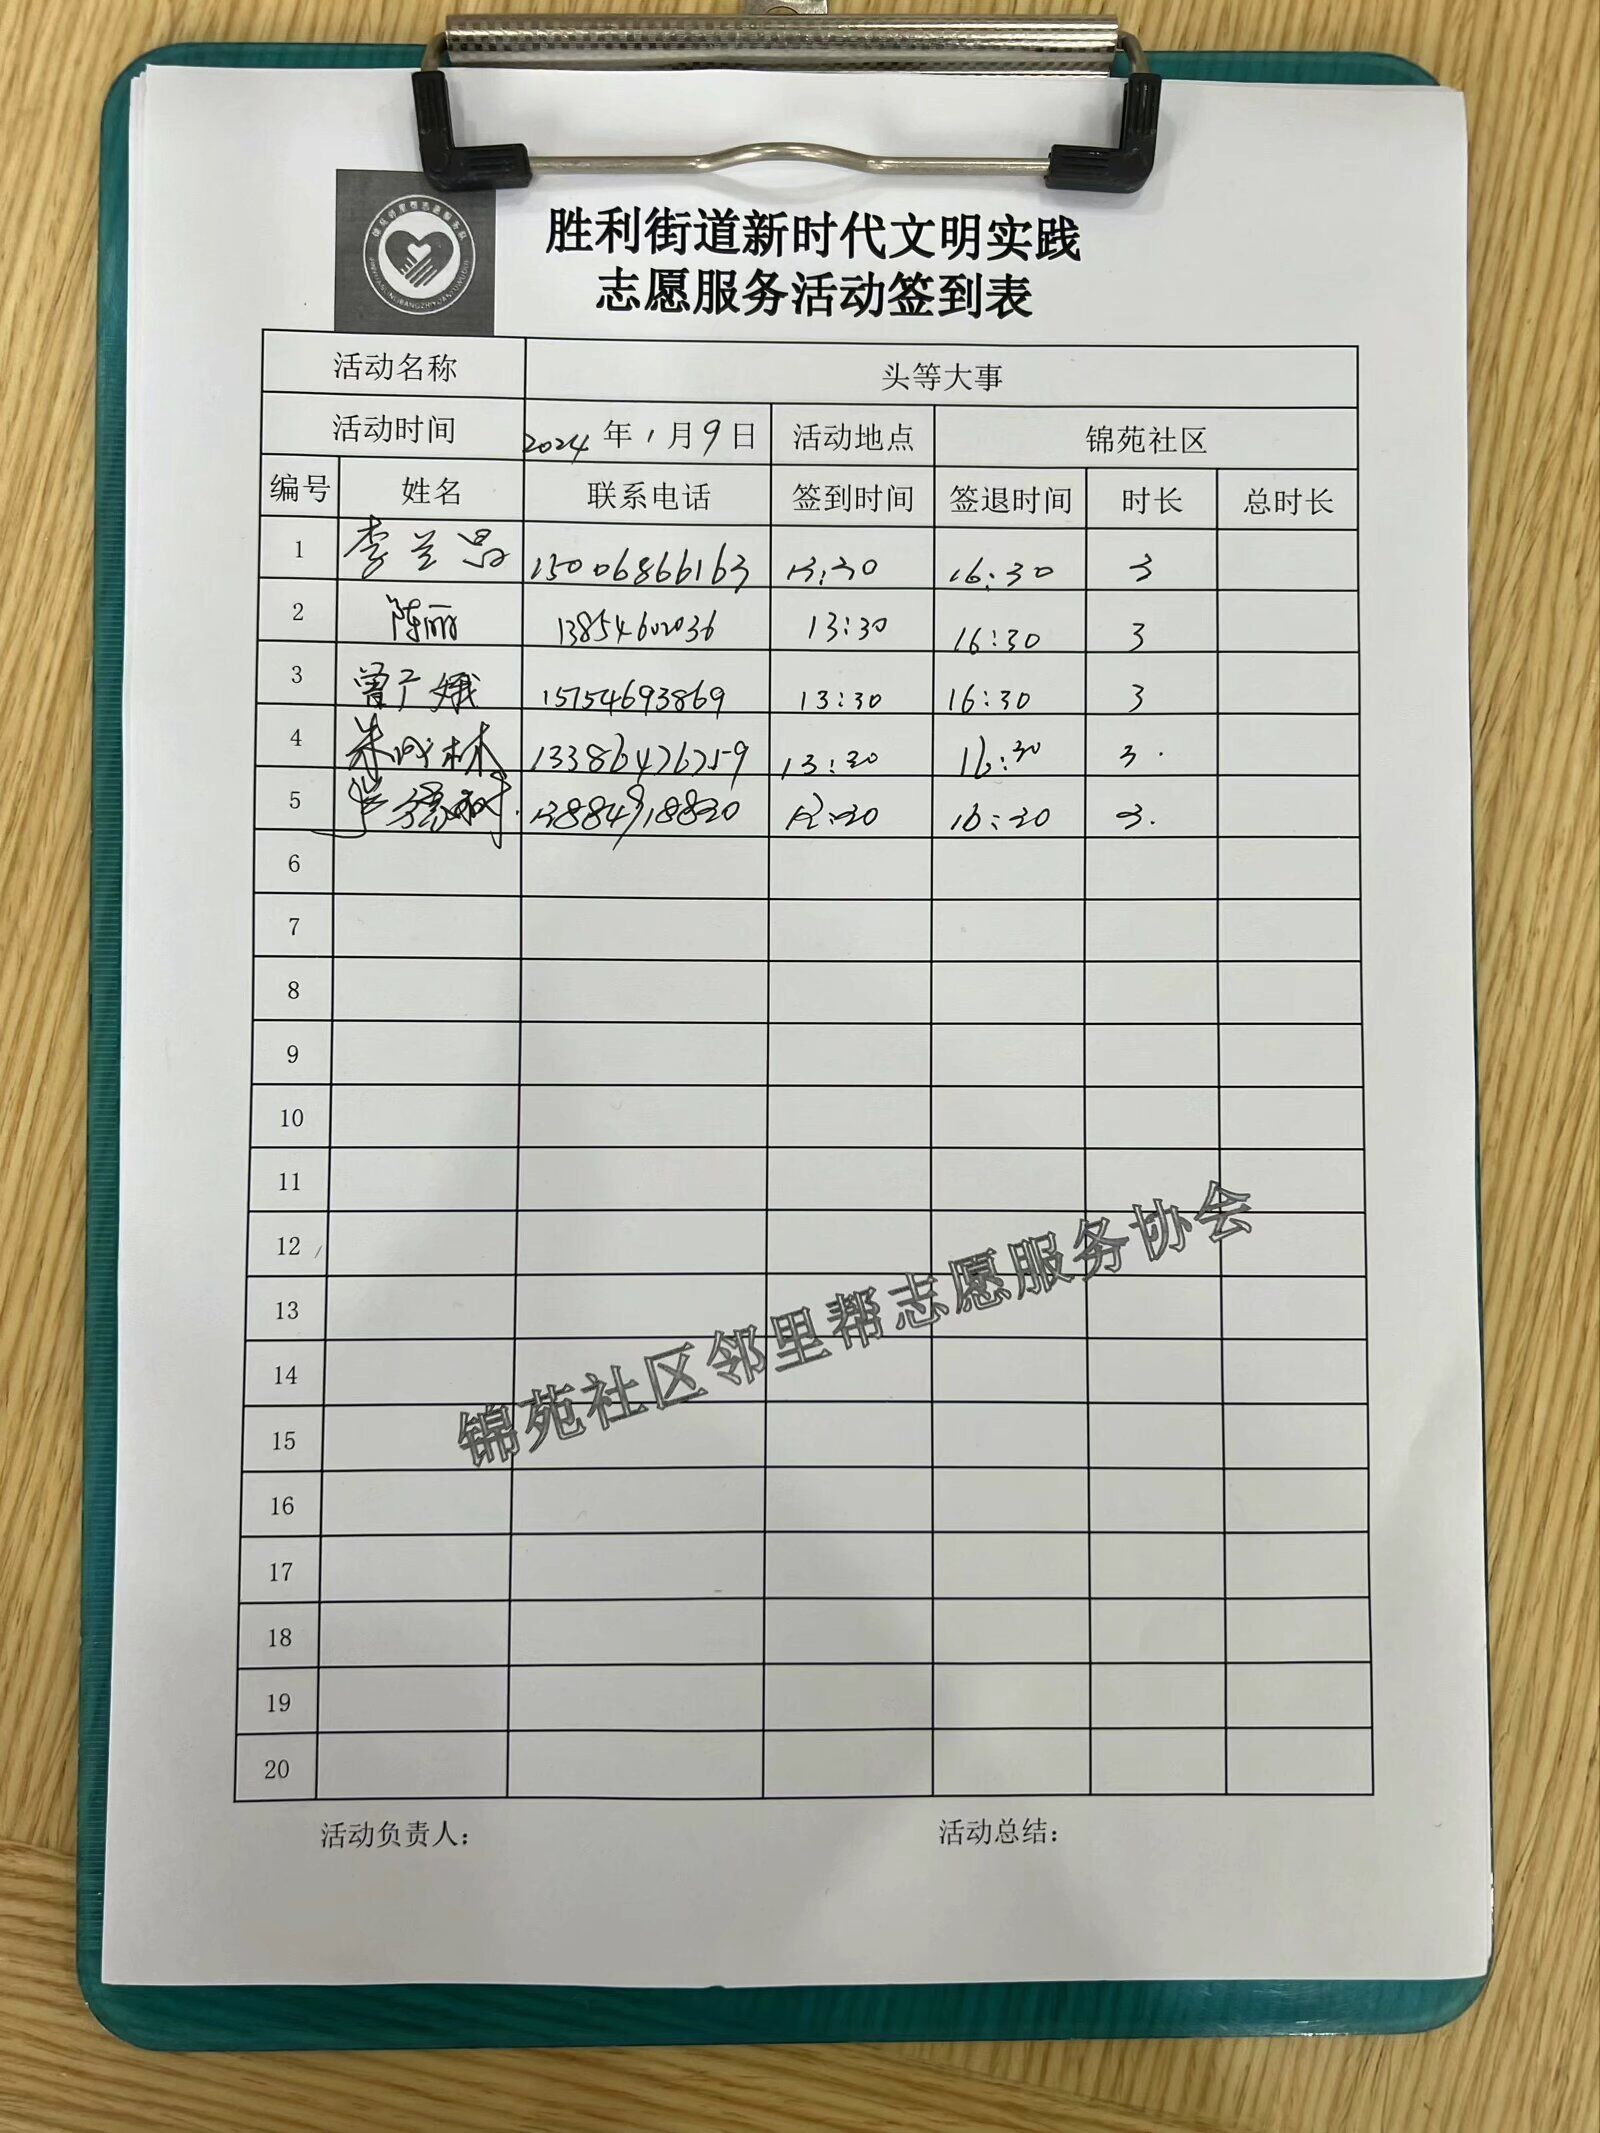 胜利街道新时代文明实践
志愿服务活动签到表
活动名称 头等大事
活动时间 2024 年 1 月 9 日 活动地点 锦苑社区
编号 姓名 联系电话 签到时间 签退时间 时长 总时长
1 李兰 15006866163 13:30 16:30 3
2 陈丽 13854602036 13:30 16:30 3
3 曾广娥 15754693869 13:30 16:30 3
4 朱成林 13386476759 13:30 16:30 3.
5 13884918820 16:30 3.
6
7
8
9
10
11
12
13
14
15
16
17
18
19
20
锦苑社区邻里帮志愿服务协会
活动负责人： 活动总结：